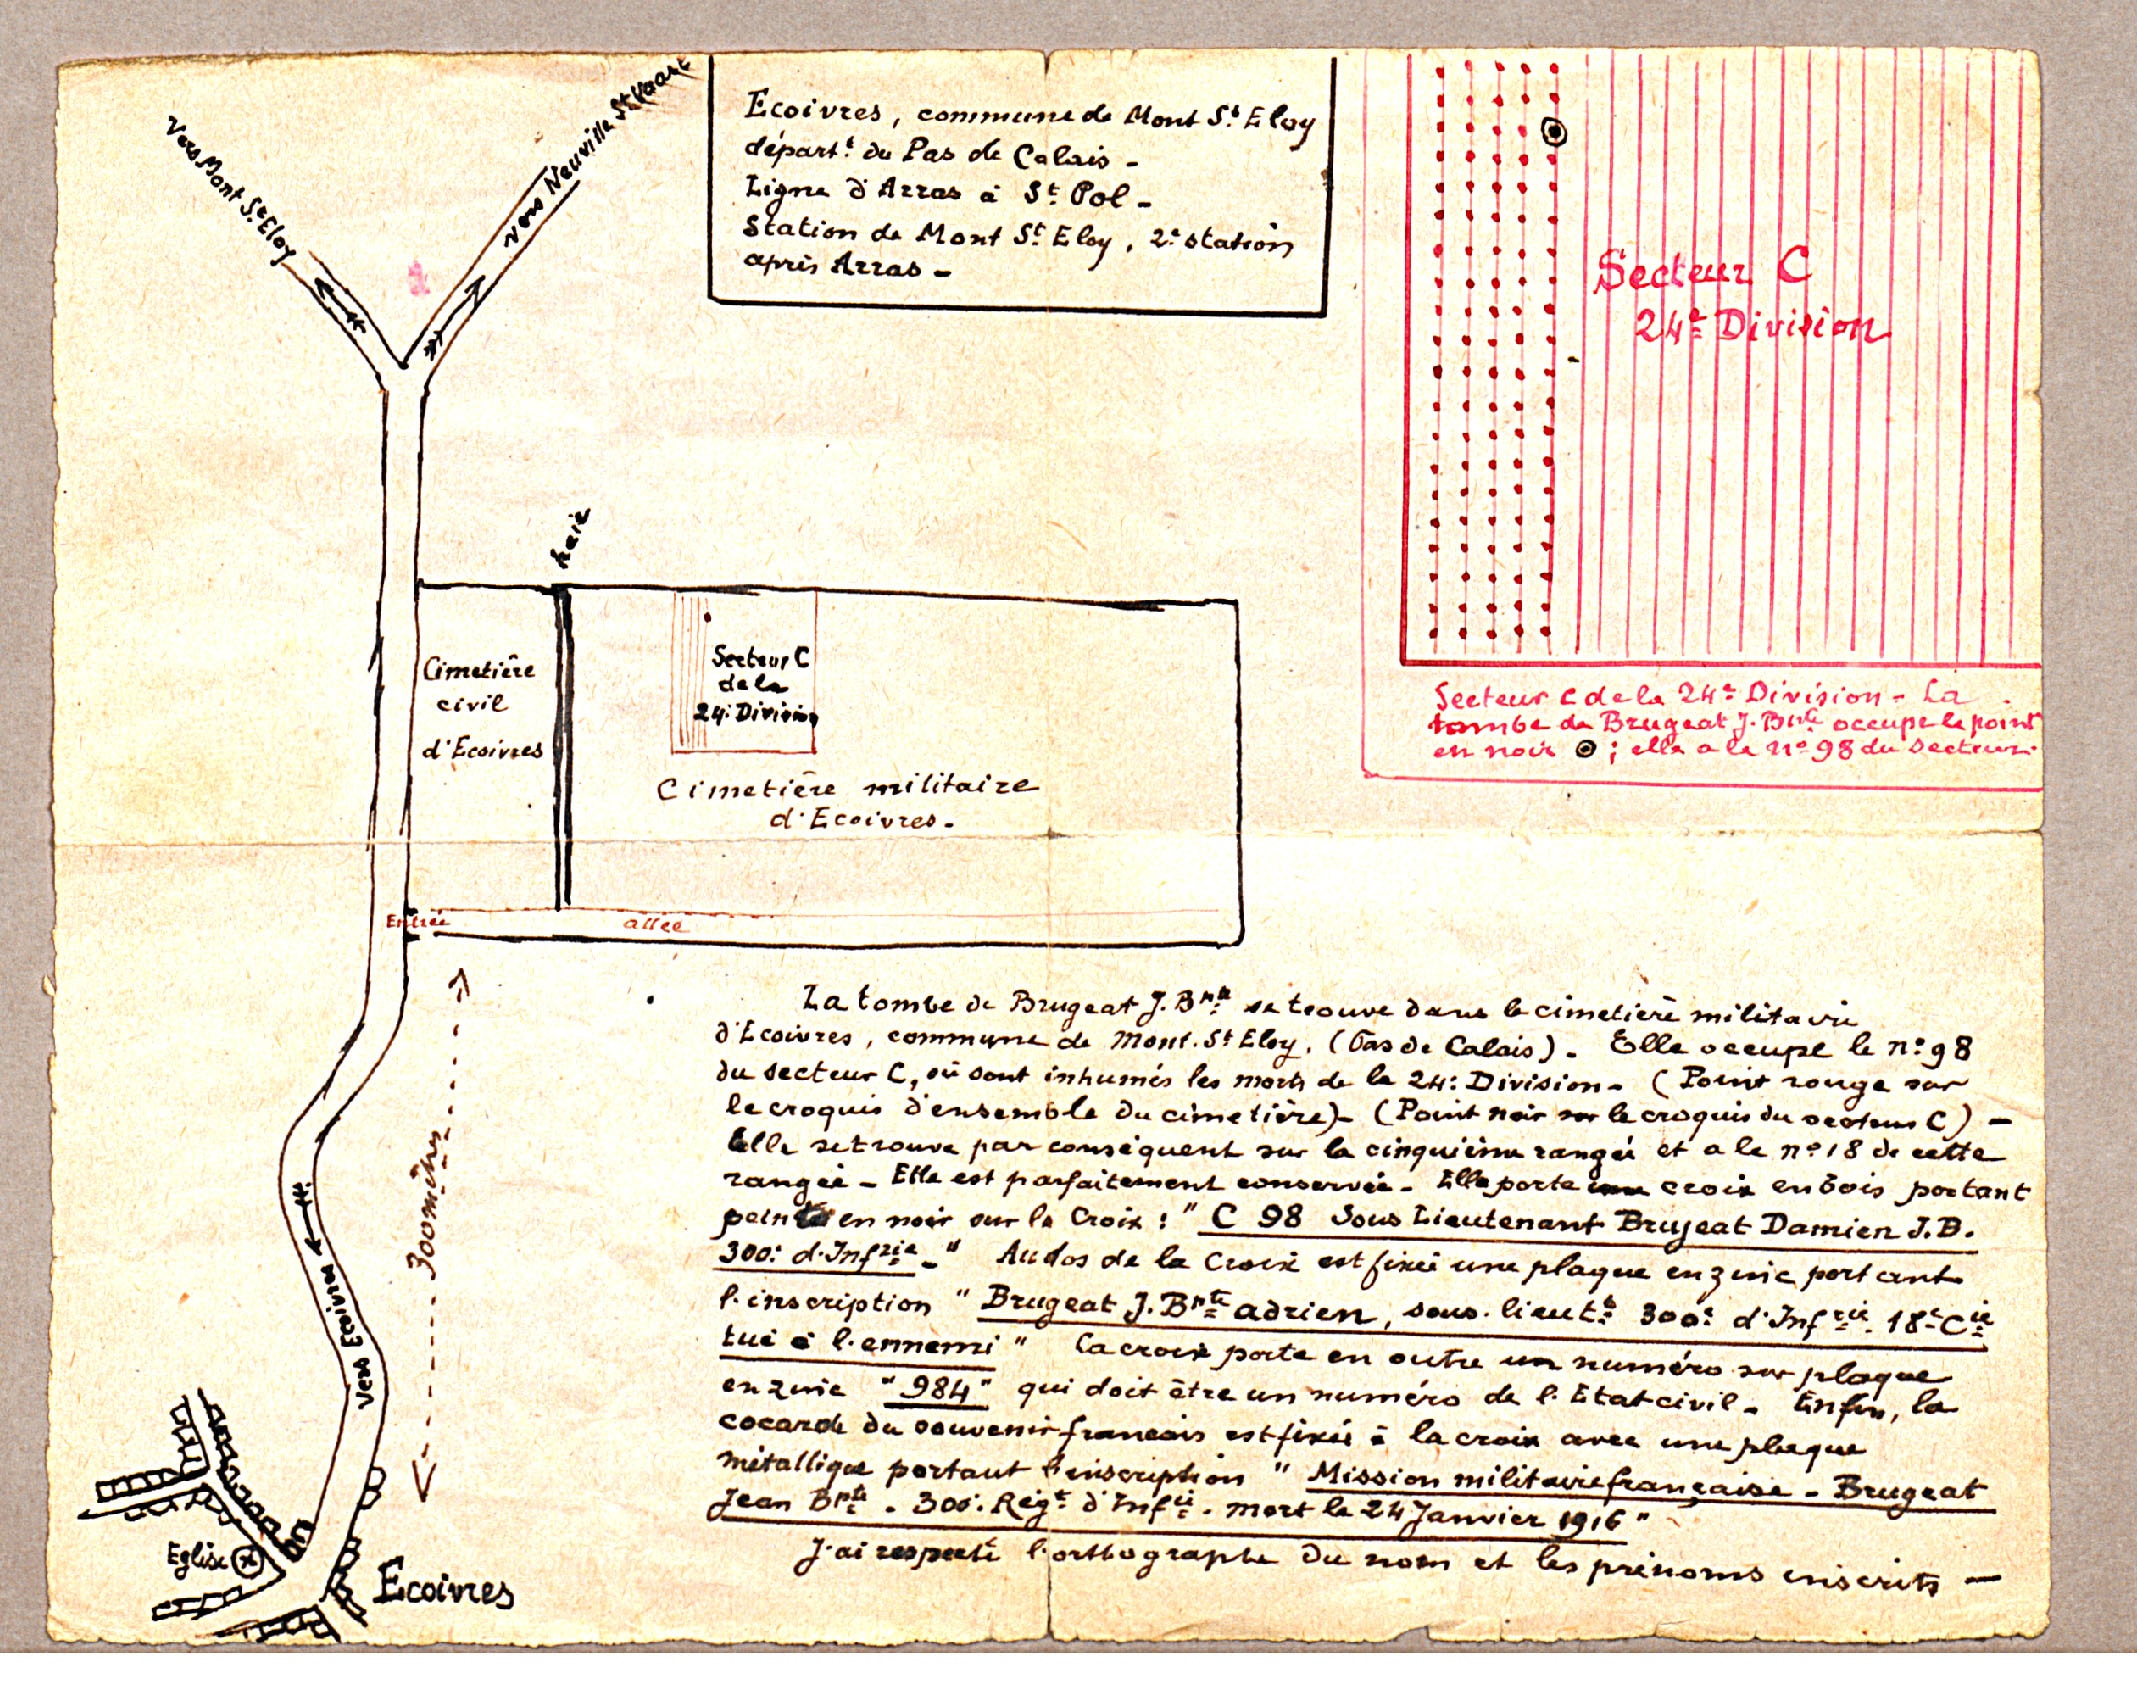 Vers Mont St Eloy
Vers Neuville St Vaast
Ecoivres, commune de Mont St Eloy
départt du Pas de Calais -
Ligne d'Arras à St Pol -
Station de Mont St Eloy, 2e station
après Arras -
Secteur C
24e Division
Secteur C de la 24e Division - La
tombe de Brugeat J. Bnte occupe le point
en noir ; elle a le no 98 du secteur.
haie
Cimetière
civil
d'Ecoivres
Secteur C
de la
24e Division
Cimetière militaire
d'Ecoivres -
Entrée
allée
300 mètres
Vers Ecoivres
Eglise
Ecoivres
La tombe de Brugeat J. Bnte se trouve dans le cimetière militaire
d'Ecoivres, commune de Mont-St Eloy, (Pas de Calais) - Elle occupe le no 98
du secteur C, où sont inhumés les morts de la 24e Division - (Point rouge sur
le croquis d'ensemble du cimetière) - (Point noir sur le croquis du secteur C) -
Elle se trouve par conséquent sur la cinquième rangée et a le no 18 de cette
rangée - Elle est parfaitement conservée - Elle porte une croix en bois portant
peint en noir sur la Croix : " C 98 Sous Lieutenant Brujeat Damien J. B.
300e d'Infrie - " Au dos de la Croix est fixée une plaque en zinc portant
l'inscription " Brugeat J. Bnte adrien, sous-lieutt 300e d'Infrie 18e Cie
tué à l'ennemi " La croix porte en outre un numéro sur plaque
en zinc " 984 " qui doit être un numéro de l'Etat civil - Enfin, la
cocarde du souvenir français est fixée à la croix avec une plaque
métallique portant l'inscription " Mission militaire française - Brugeat
Jean Bnte - 300e Régt d'Infie - mort le 24 Janvier 1916 "
J'ai respecté l'orthographe du nom et les prénoms inscrits -